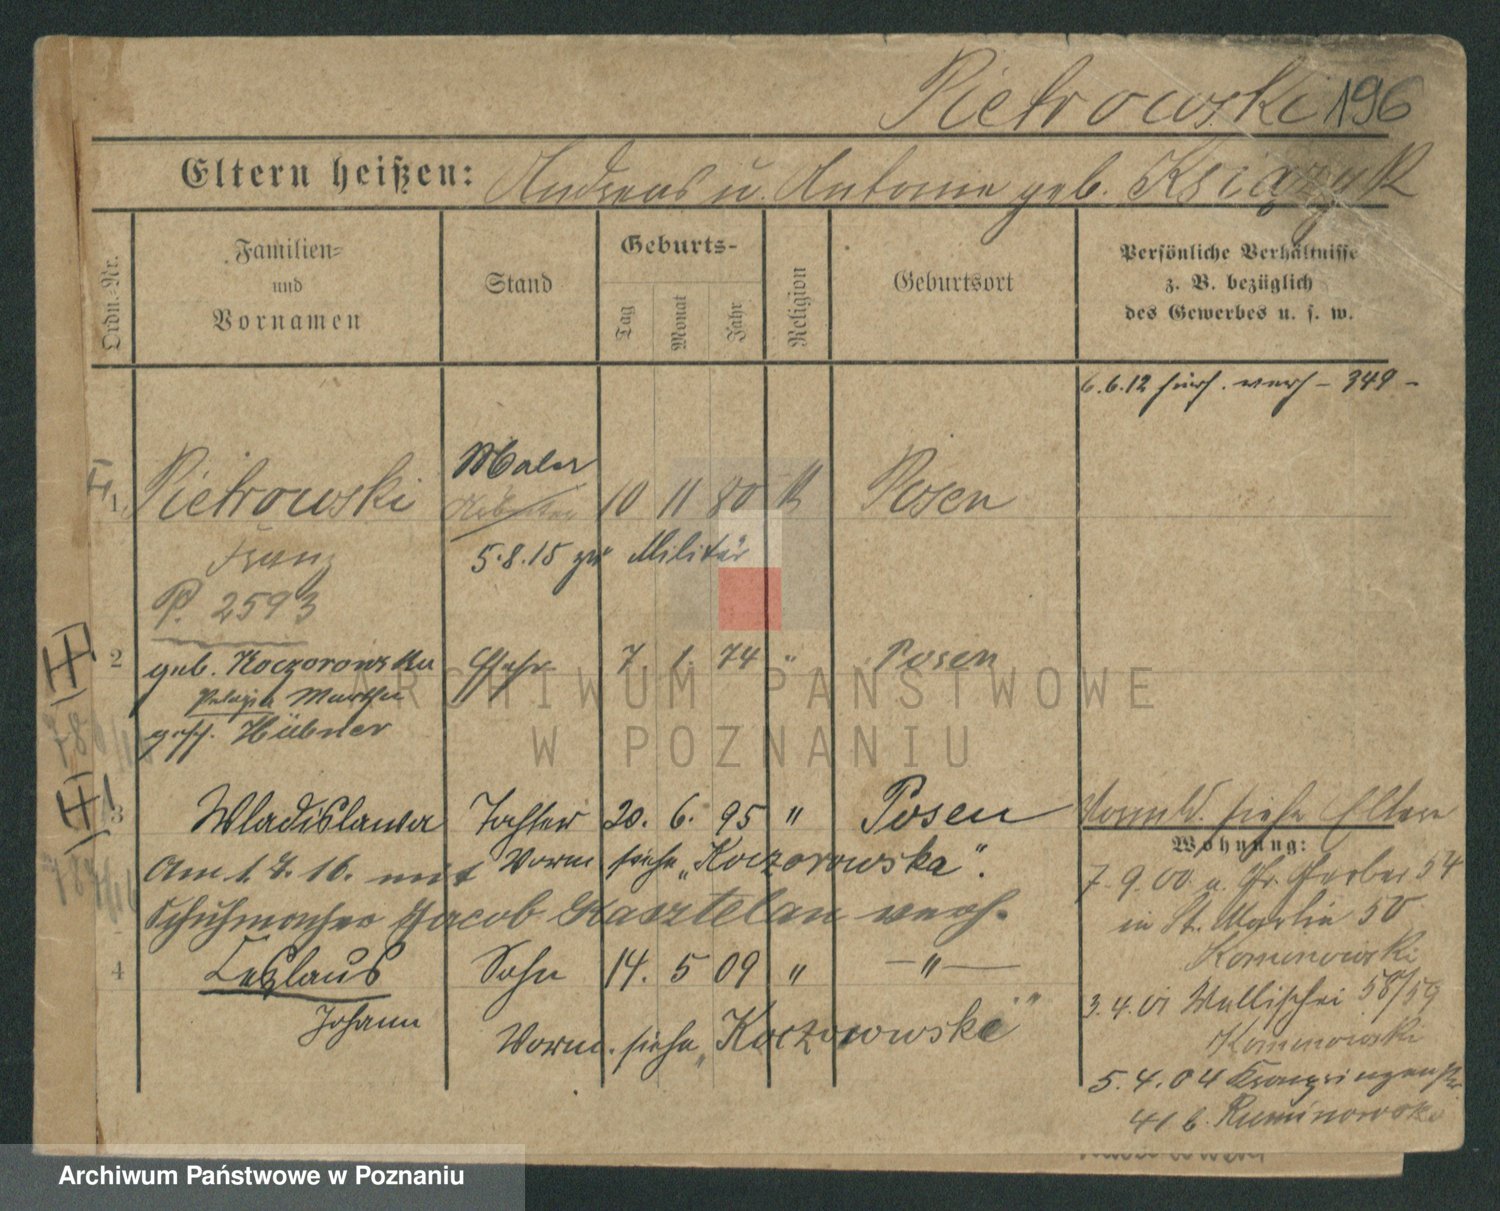 Pietrowski 196
Eltern heißen: Andreas u. Antonie geb. Książyk
Ordn.-Nr.
Familien-
und
Vornamen
Stand
Geburts-
Tag
Monat
Jahr
Religion
Geburtsort
Persönliche Verhältnisse
z. B. bezüglich
des Gewerbes u. s. w.
6.6.12 verh - 349 -
Maler
1. Pietrowski 10 11 80 K Posen
Franz 5.8.15 zu Militär
P. 2593
2 geb. Koczorowska Ehefr 7 1. 74 " Posen
Pelagia Martha
gesch. Hübner
3 Wladislawa Tochter 20. 6. 95 " Posen siehe Eltern
Wohnung:
Am 1.7.16. mit Vorm. siehe „Koczorowska".
7.9.00 Gr. Gerber 54
Schuhmacher Jacob Kasztelan verh.
in St. Martin 50
Kominowski
4 Ceslaus Sohn 14. 5 09 " —"—
3.4.01 Wallischei 58/59
Johann Vorm. siehe „Koczorowski"
Kominowski
5.4.04 Kronprinzenstr
41 b. Kuminowski
ARCHIWUM PAŃSTWOWE
W POZNANIU
Archiwum Państwowe w Poznaniu